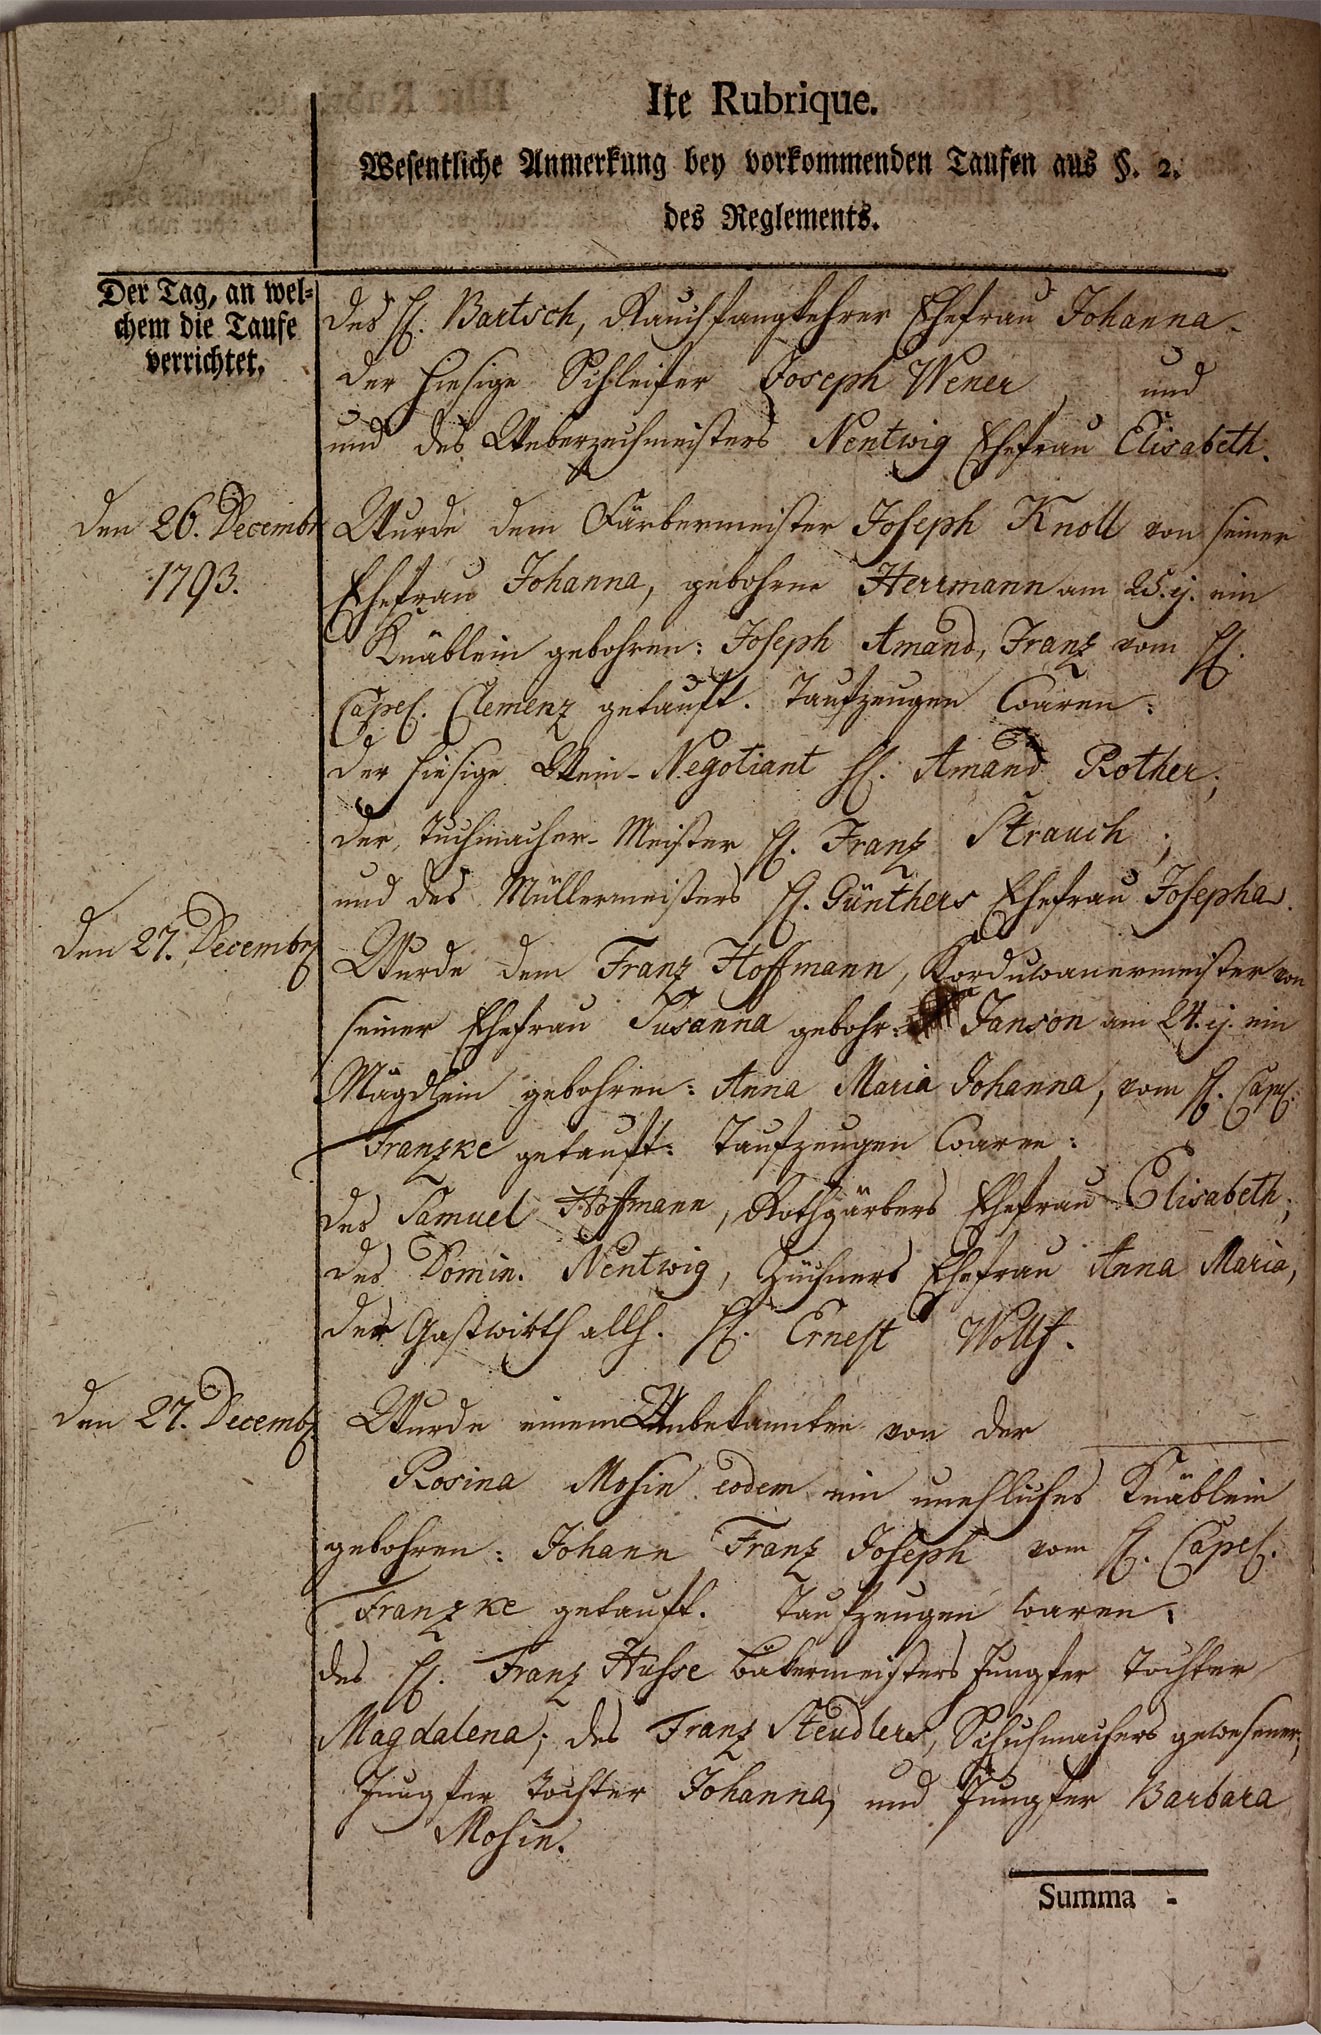 Ite Rubrique.
Wesentliche Anmerkung bey vorkommenden Taufen aus §. 2.
des Reglements.
Der Tag, an wel-
chem die Taufe
verrichtet.
des H. Bartsch, Rauchfangkehrer Ehefrau Johanna.
der hiesige Schleifer Joseph Wener, und
und des Weberzechmeisters Nentwig Ehefrau Elisabeth.
den 26. Decembr
1793.
Wurde dem Färbermeister Joseph Knoll von seiner
Ehefrau Johanna, gebohrne Herrmann am 25. ej. ein
Knäblein gebohren: Joseph Amand, Franz vom H.
Capel. Clemenz getauft. Taufzeugen waren:
der hiesige Wein-Negotiant H. Amand Rother;
der Tuchmacher-Meister H. Franz Strauch;
und des Müllermeisters H. Günthers Ehefrau Josepha.
den 27. Decembr
Wurde dem Franz Hoffmann, Korduwanermeister von
seiner Ehefrau Susanna gebohr. Janson am 24. ej. ein
Mägdlein gebohren: Anna Maria Johanna, vom H. Capel.
Franzke getauft: Taufzeugen waren:
des Samuel Hoffmann, Rothgärbers Ehefrau Elisabeth;
des Domin. Nentwig, Züchners Ehefrau Anna Maria,
der Gastwirth allh. H. Ernest Wolff.
den 27. Decembr.
Wurde einem Unbekannten von der
Rosina Mohin eodem ein unehliches Knäblein
gebohren: Johann Franz Joseph vom H. Capel.
Franzke getauft. Taufzeugen waren:
des H. Franz Hasse Bäkermeisters Jungfer Tochter
Magdalena; des Franz Steudlers, Schuhmachers gewesener,
Jungfer Tochter Johanna, und Jungfer Barbara
Mohin.
Summa -